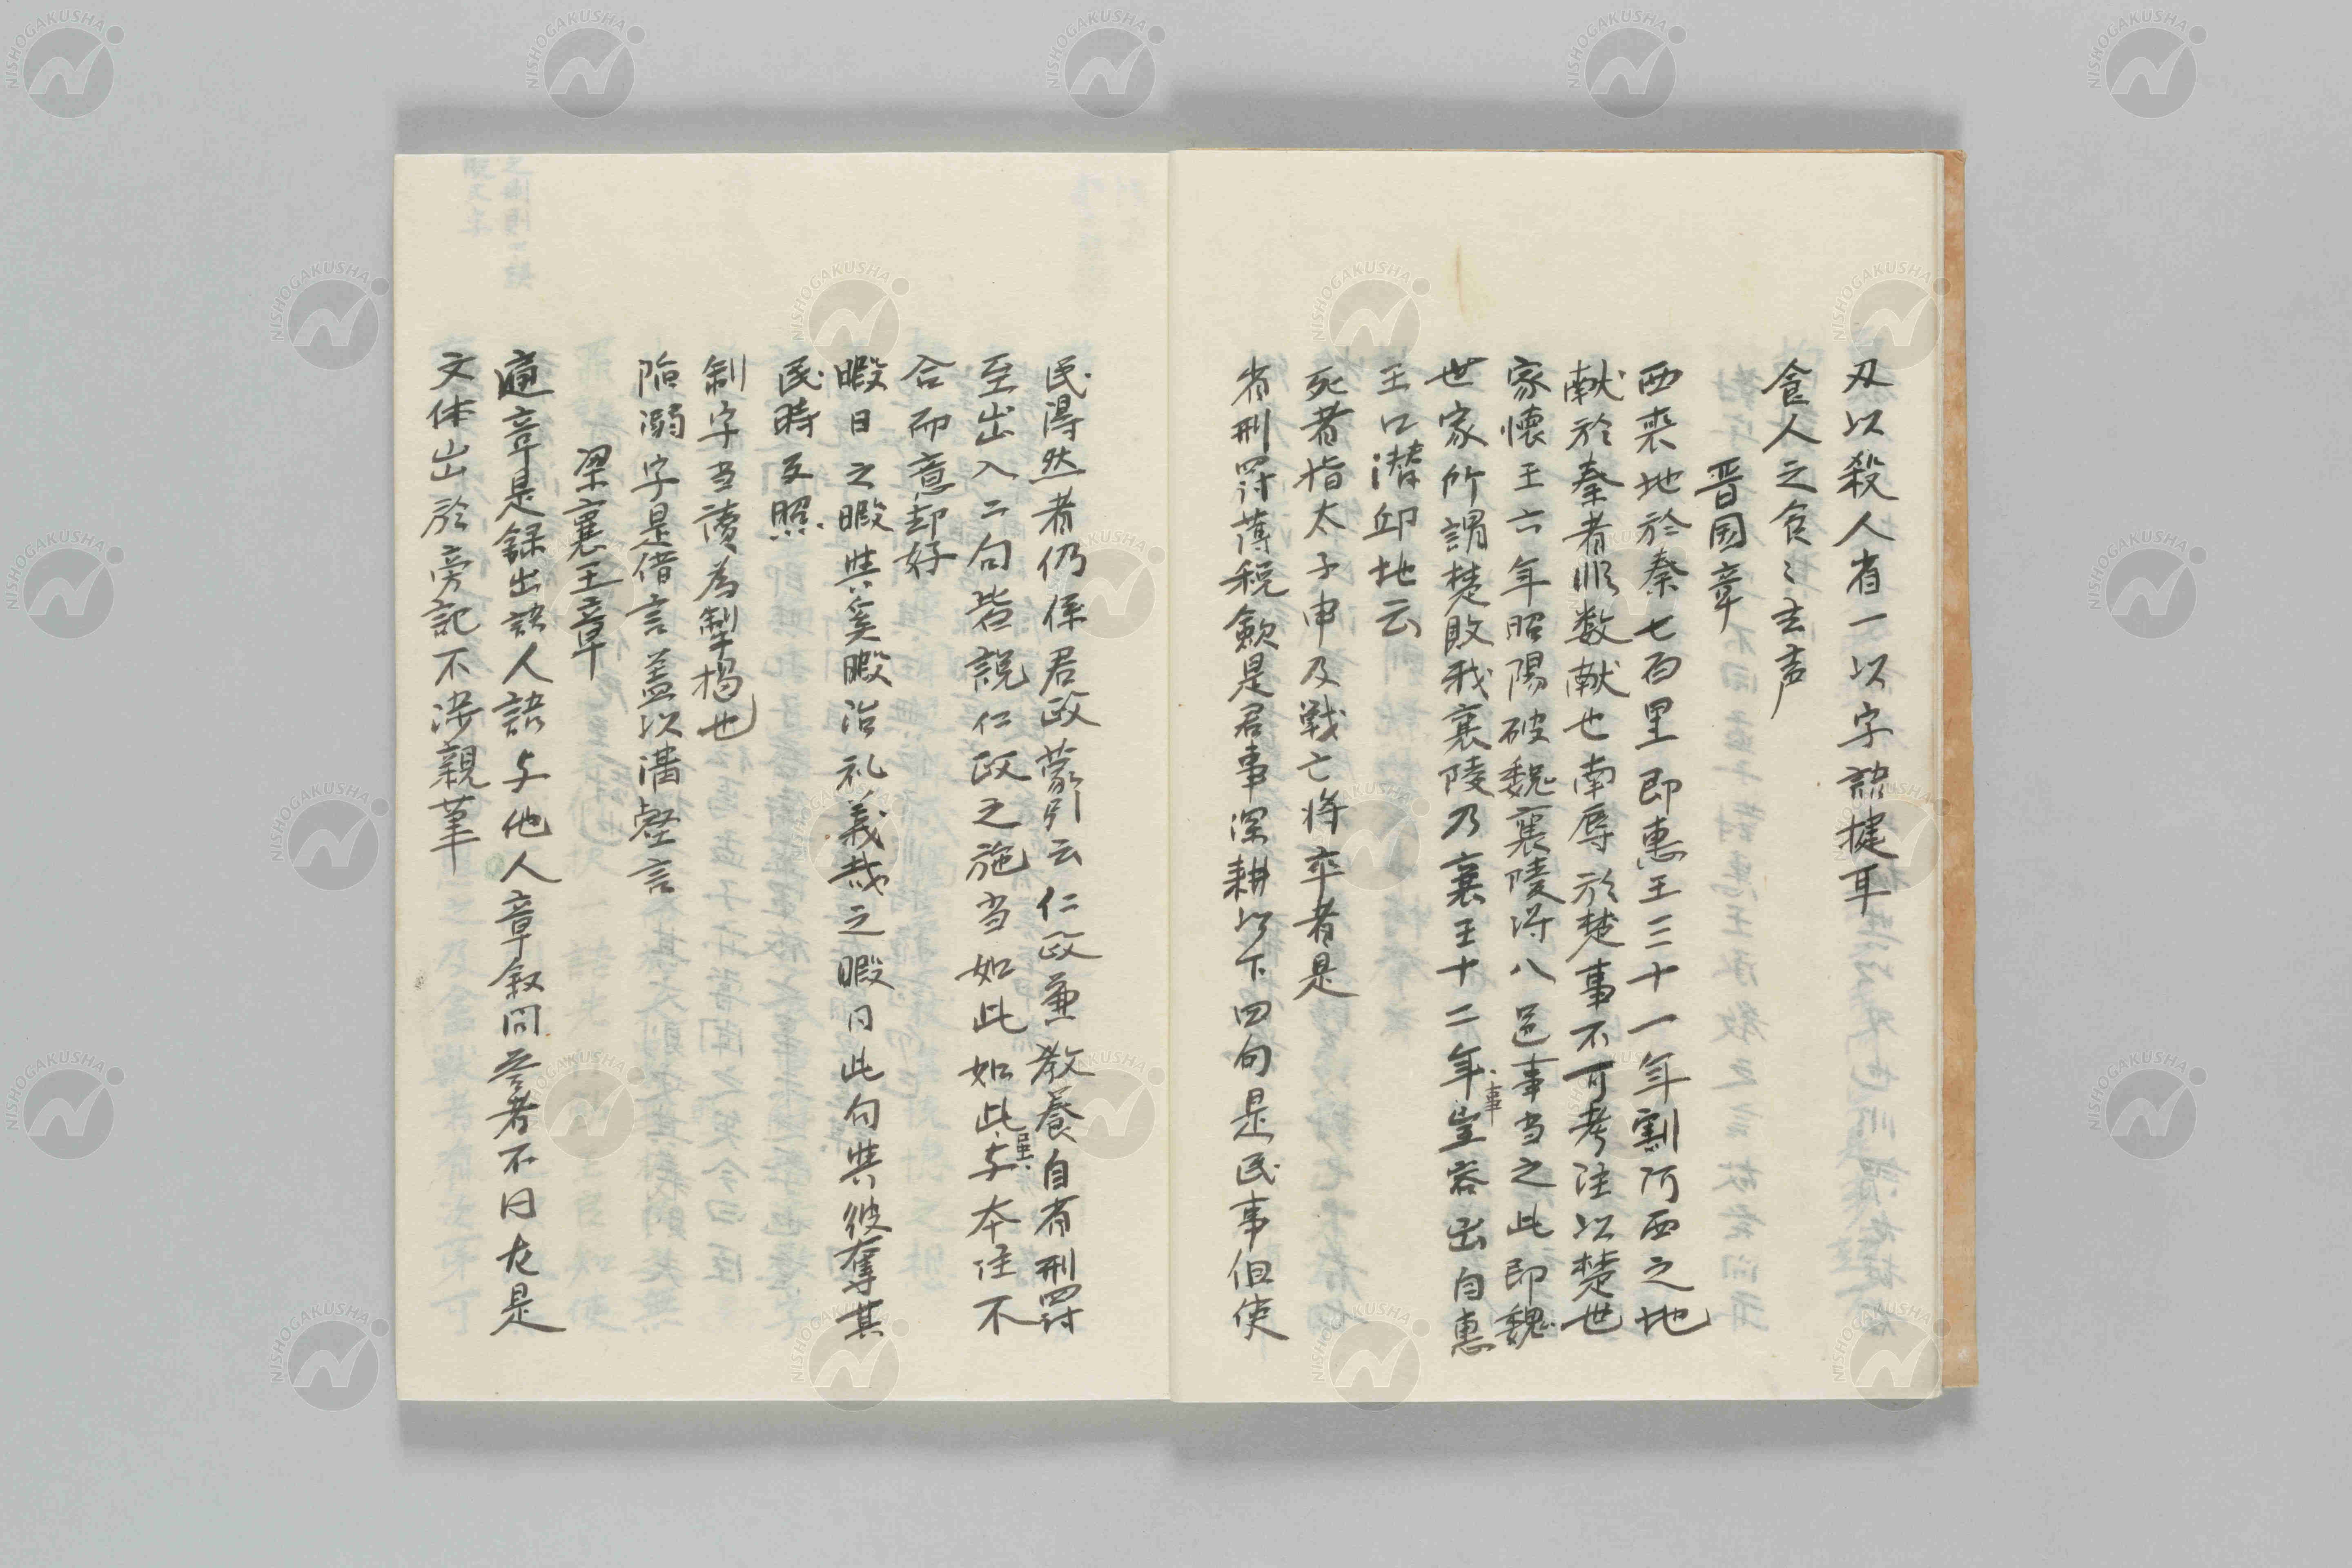 刄以殺人省一以字語捷耳
食人之食〻去声
晋国章
西喪地於秦七百里即惠王三十一年割河西之地
献於秦者順数献也南辱於楚事不可考注以楚世
家懐王六年昭陽破魏襄陵得八邑事当之此即魏
世家所謂楚敗我襄陵乃襄王十二年事豈容出自惠
王口潜邱地云
死者指太子申及戦亡将卒者是
省刑罰薄税斂是君事深耕以下四句是民事但使
民得然者仍係君政蒙引云仁政兼教養自省刑罰
至出入二句皆説仁政之施当如此如此与本注不
合而意却好
暇日之暇與奚暇治礼義哉之暇同此句與彼奪其
民時互照
制字当讀為掣掲也
陥溺字是借言蓋以溝壑言
梁襄王章
通章是録出語人語与他人章叙問答者不同尤是
文体出於旁記不渉親筆
NISHOGAKUSHA